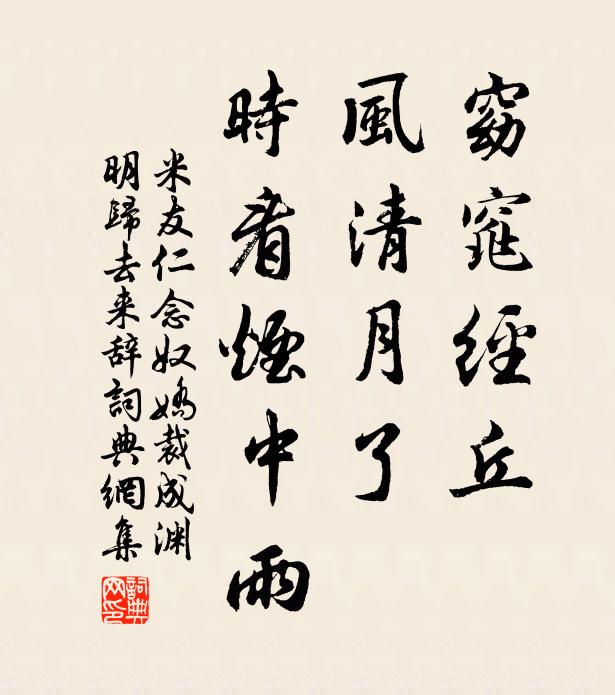 窈窕經丘
風清月了
時看煙中雨
米友仁念奴嬌裁成渊
明歸去来辞詞典網集
詞典
网印